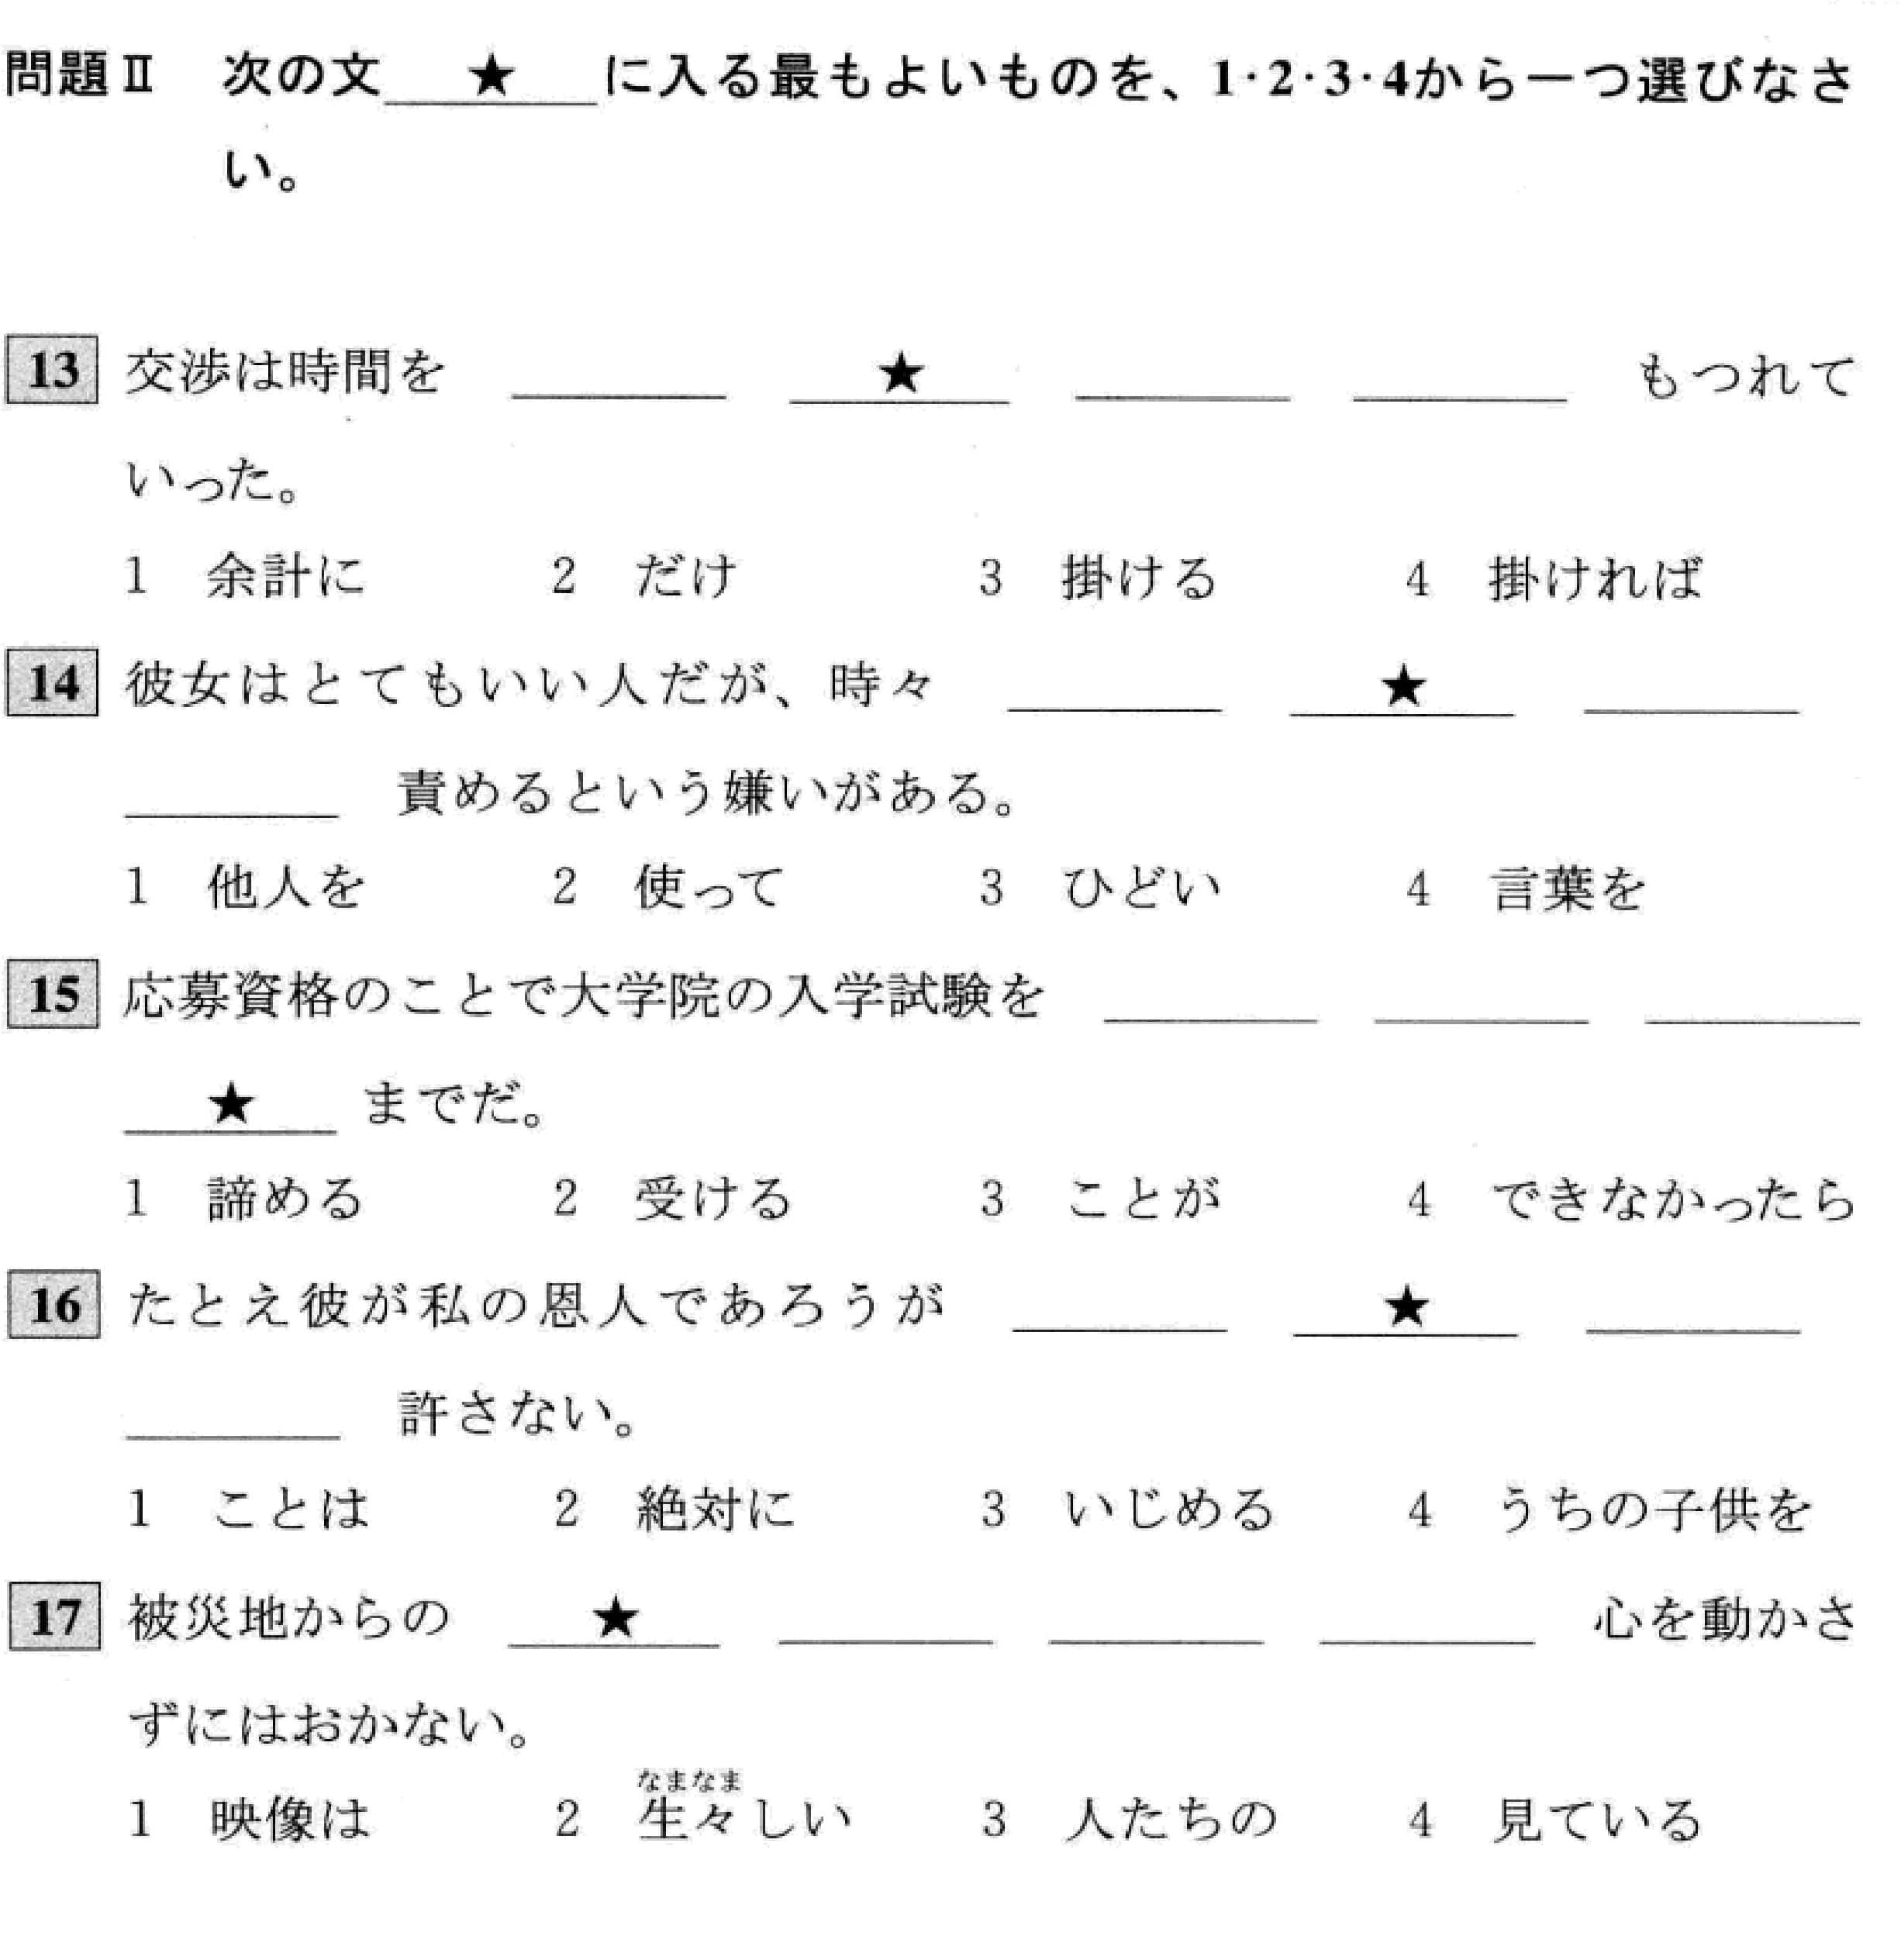 問題Ⅱ 次の文 ★ に入る最もよいものを、1・2・3・4から一つ選びなさ
い。
13 交渉は時間を ＿＿＿ ★ ＿＿＿ ＿＿＿ もつれて
いった。
1 余計に 2 だけ 3 掛ける 4 掛ければ
14 彼女はとてもいい人だが、時々 ＿＿＿ ★ ＿＿＿
＿＿＿ 責めるという嫌いがある。
1 他人を 2 使って 3 ひどい 4 言葉を
15 応募資格のことで大学院の入学試験を ＿＿＿ ＿＿＿ ＿＿＿
★ までだ。
1 諦める 2 受ける 3 ことが 4 できなかったら
16 たとえ彼が私の恩人であろうが ＿＿＿ ★ ＿＿＿
＿＿＿ 許さない。
1 ことは 2 絶対に 3 いじめる 4 うちの子供を
17 被災地からの ★ ＿＿＿ ＿＿＿ ＿＿＿ 心を動かさ
ずにはおかない。
なまなま
1 映像は 2 生々しい 3 人たちの 4 見ている